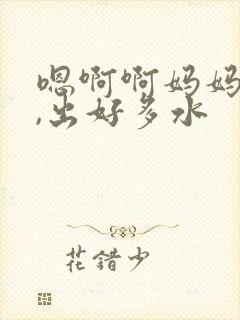 嗯啊啊妈妈
,出好多水
花错少